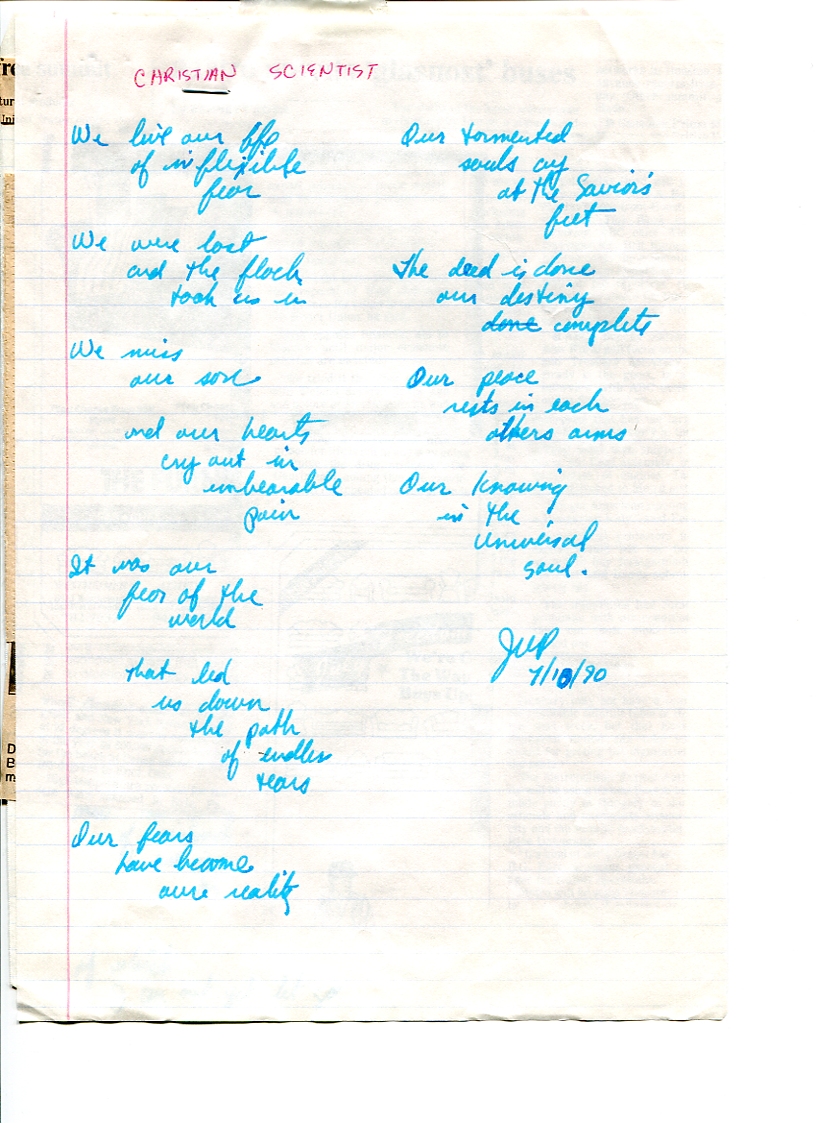 CHRISTIAN SCIENTIST
We live our life
of inflexible
fear
We were lost
and the flock
took us in
We miss
our son
and our hearts
cry out in
unbearable
pain
It was our
fear of the
world
that led
us down
the path
of endless
tears
Our fears
have become
oure reality
Our tormented
souls cry
at the Savior's
feet
The deed is done
our destiny
done complete
Our peace
rests in each
others arms
Our knowing
in the
Universal
soul.
7/10/90